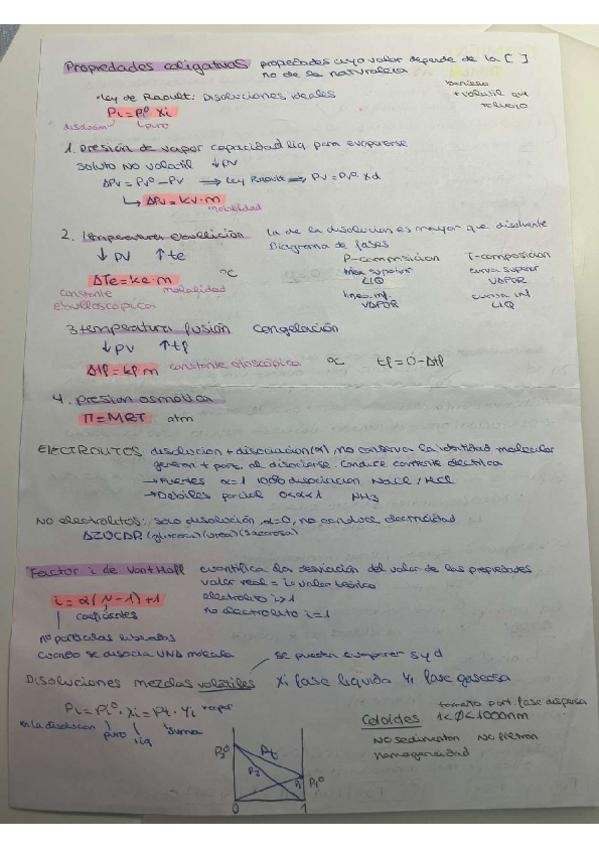 Propiedades coligativas propiedades cuyo valor depende de la [ ]
no de la naturaleza
Ley de Raoult: Disoluciones ideales
+ volatil que
Pi = Pi⁰ Xi
disolucion puro
1. Presión de vapor capacidad liq para evaporarse
soluto NO volatil ↓PV
ΔPv = Pv⁰ - Pv ⟹ Ley Raoult ⟹ Pv = Pv⁰ · Xd
↳ ΔPv = kv · m
molalidad
2. Temperatura ebullición la de la disolucion es mayor que disolvente
↓ PV ↑ te Diagrama de fases
P-composicion T-composicion
ΔTe = ke · m ºC linea superior curva superior
LIQ VAPOR
constante molalidad linea inf. curva inf
ebulloscópica VAPOR LIQ
3 temperatura fusión congelación
↓ PV ↑ tf
Δtf = kf m constante crioscópica ºC tf = 0 - Δtf
4. Presion osmótica
Π = MRT atm
ELECTROLITOS disolucion + disociacion (α), no conserva la identidad molecular
generan + part. al disociarse. Conduce corriente electrica
→ Fuertes α=1 100% disociacion NaCl / HCl
→ Debiles parcial 0<α<1 NH3
NO electrolitos: solo disolución, α=0, no conduce electricidad
AZÚCAR (glucosa) (urea) (sacarosa)
Factor i de Vant Hoff cuantifica la desviación del valor de las propiedades
valor real = i · valor teórico
i = α (N - 1) + 1 electrolito i>1
no electrolito i=1
coeficientes
nº particulas liberadas
cuando se disocia UNA molecula
se pueden evaporar s y d
Disoluciones mezclas volatiles Xi fase liquida Yi fase gaseosa
Pi = Pi⁰ · Xi = Pt · Yi vapor
en la disolucion puro liq suma
Coloides tamaño part. fase dispersa
1 < Ø < 1000nm
NO sedimentan NO filtran
homogeneidad
P2⁰ Pt
P2 P1 P1⁰
0 1